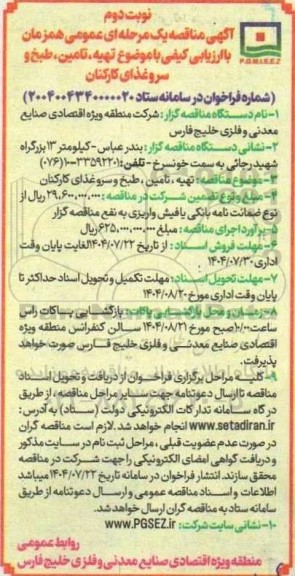 نوبت دوم
آگهی مناقصه یک مرحله ای عمومی همزمان
با ارزیابی کیفی با موضوع تهیه، تامین، طبخ و
سرو غذای کارکنان
P.G.M.I.S.E.Z
(شماره فراخوان در سامانه ستاد ۲۰۰۴۰۰۴۳۴۰۰۰۰۰۲۰)
۱- نام دستگاه مناقصه گزار: شرکت منطقه ویژه اقتصادی صنایع
معدنی و فلزی خلیج فارس
۲- نشانی دستگاه مناقصه گزار: بندرعباس - کیلومتر ۱۳ بزرگراه
شهید رجائی به سمت خونسرخ - تلفن: ۳۳۵۹۲۲۰۱-(۰۷۶)
۳- موضوع مناقصه: تهیه، تامین، طبخ و سرو غذای کارکنان
۴- مبلغ و نوع تضمین شرکت در مناقصه: ۲۹,۶۰۰,۰۰۰,۰۰۰ ریال از
نوع ضمانت نامه بانکی یا فیش واریزی به نفع مناقصه گزار
۵- برآورد اجرای مناقصه: مبلغ ۶۲۵,۰۰۰,۰۰۰,۰۰۰ ریال
۶- مهلت فروش اسناد: از تاریخ ۱۴۰۴/۰۷/۲۲ لغایت پایان وقت
اداری ۱۴۰۴/۰۷/۳۰
۷- مهلت تحویل اسناد: مهلت تکمیل و تحویل اسناد حداکثر تا
پایان وقت اداری مورخ ۱۴۰۴/۰۸/۲۰
۸- زمان و محل بازگشایی پاکات: بازگشایی پاکات راس
ساعت ۱۰:۰۰ صبح مورخ ۱۴۰۴/۰۸/۲۱ سالن کنفرانس منطقه ویژه
اقتصادی صنایع معدنی و فلزی خلیج فارس صورت خواهد
پذیرفت.
۹- کلیه مراحل برگزاری فراخوان از دریافت و تحویل اسناد
مناقصه تا ارسال دعوتنامه جهت سایر مراحل مناقصه، از طریق
درگاه سامانه تدارکات الکترونیکی دولت (ستاد) به آدرس:
www.setadiran.ir انجام خواهد شد. لازم است مناقصه گران
در صورت عدم عضویت قبلی، مراحل ثبت نام در سایت مذکور
و دریافت گواهی امضای الکترونیکی را جهت شرکت در مناقصه
محقق سازند. انتشار فراخوان در سامانه تاریخ ۱۴۰۴/۰۷/۲۲ میباشد
اطلاعات و اسناد مناقصه عمومی و ارسال دعوتنامه از طریق
سامانه ستاد به مناقصه گران ارسال خواهد شد.
۱۰- نشانی سایت شرکت: www.PGSEZ.ir
روابط عمومی
منطقه ویژه اقتصادی صنایع معدنی و فلزی خلیج فارس